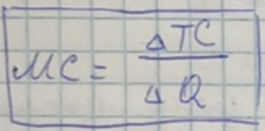 MC = ΔTC / ΔQ